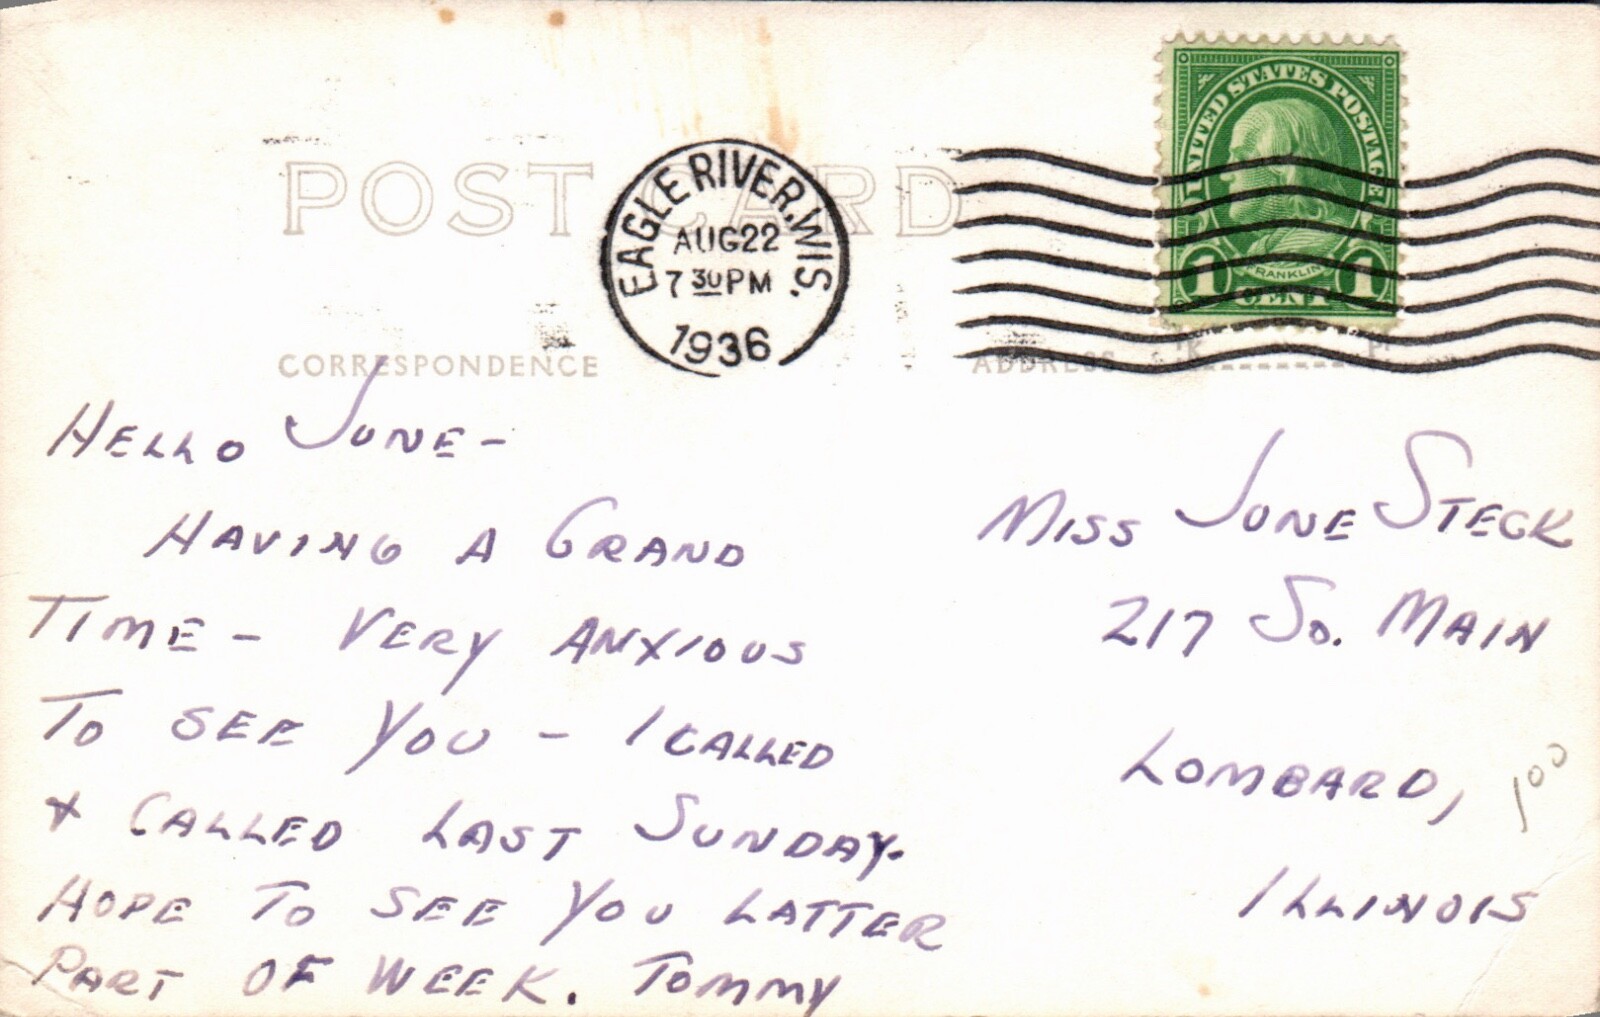 POST CARD
EAGLE RIVER, WIS.
AUG 22
7 30 PM
1936
UNITED STATES POSTAGE
FRANKLIN
1 CENT 1
CORRESPONDENCE
ADDRESS
HELLO JUNE -
HAVING A GRAND
TIME - VERY ANXIOUS
TO SEE YOU - I CALLED
& CALLED LAST SUNDAY.
HOPE TO SEE YOU LATTER
PART OF WEEK. TOMMY
MISS JUNE STECK
217 SO. MAIN
LOMBARD,
ILLINOIS
1 00